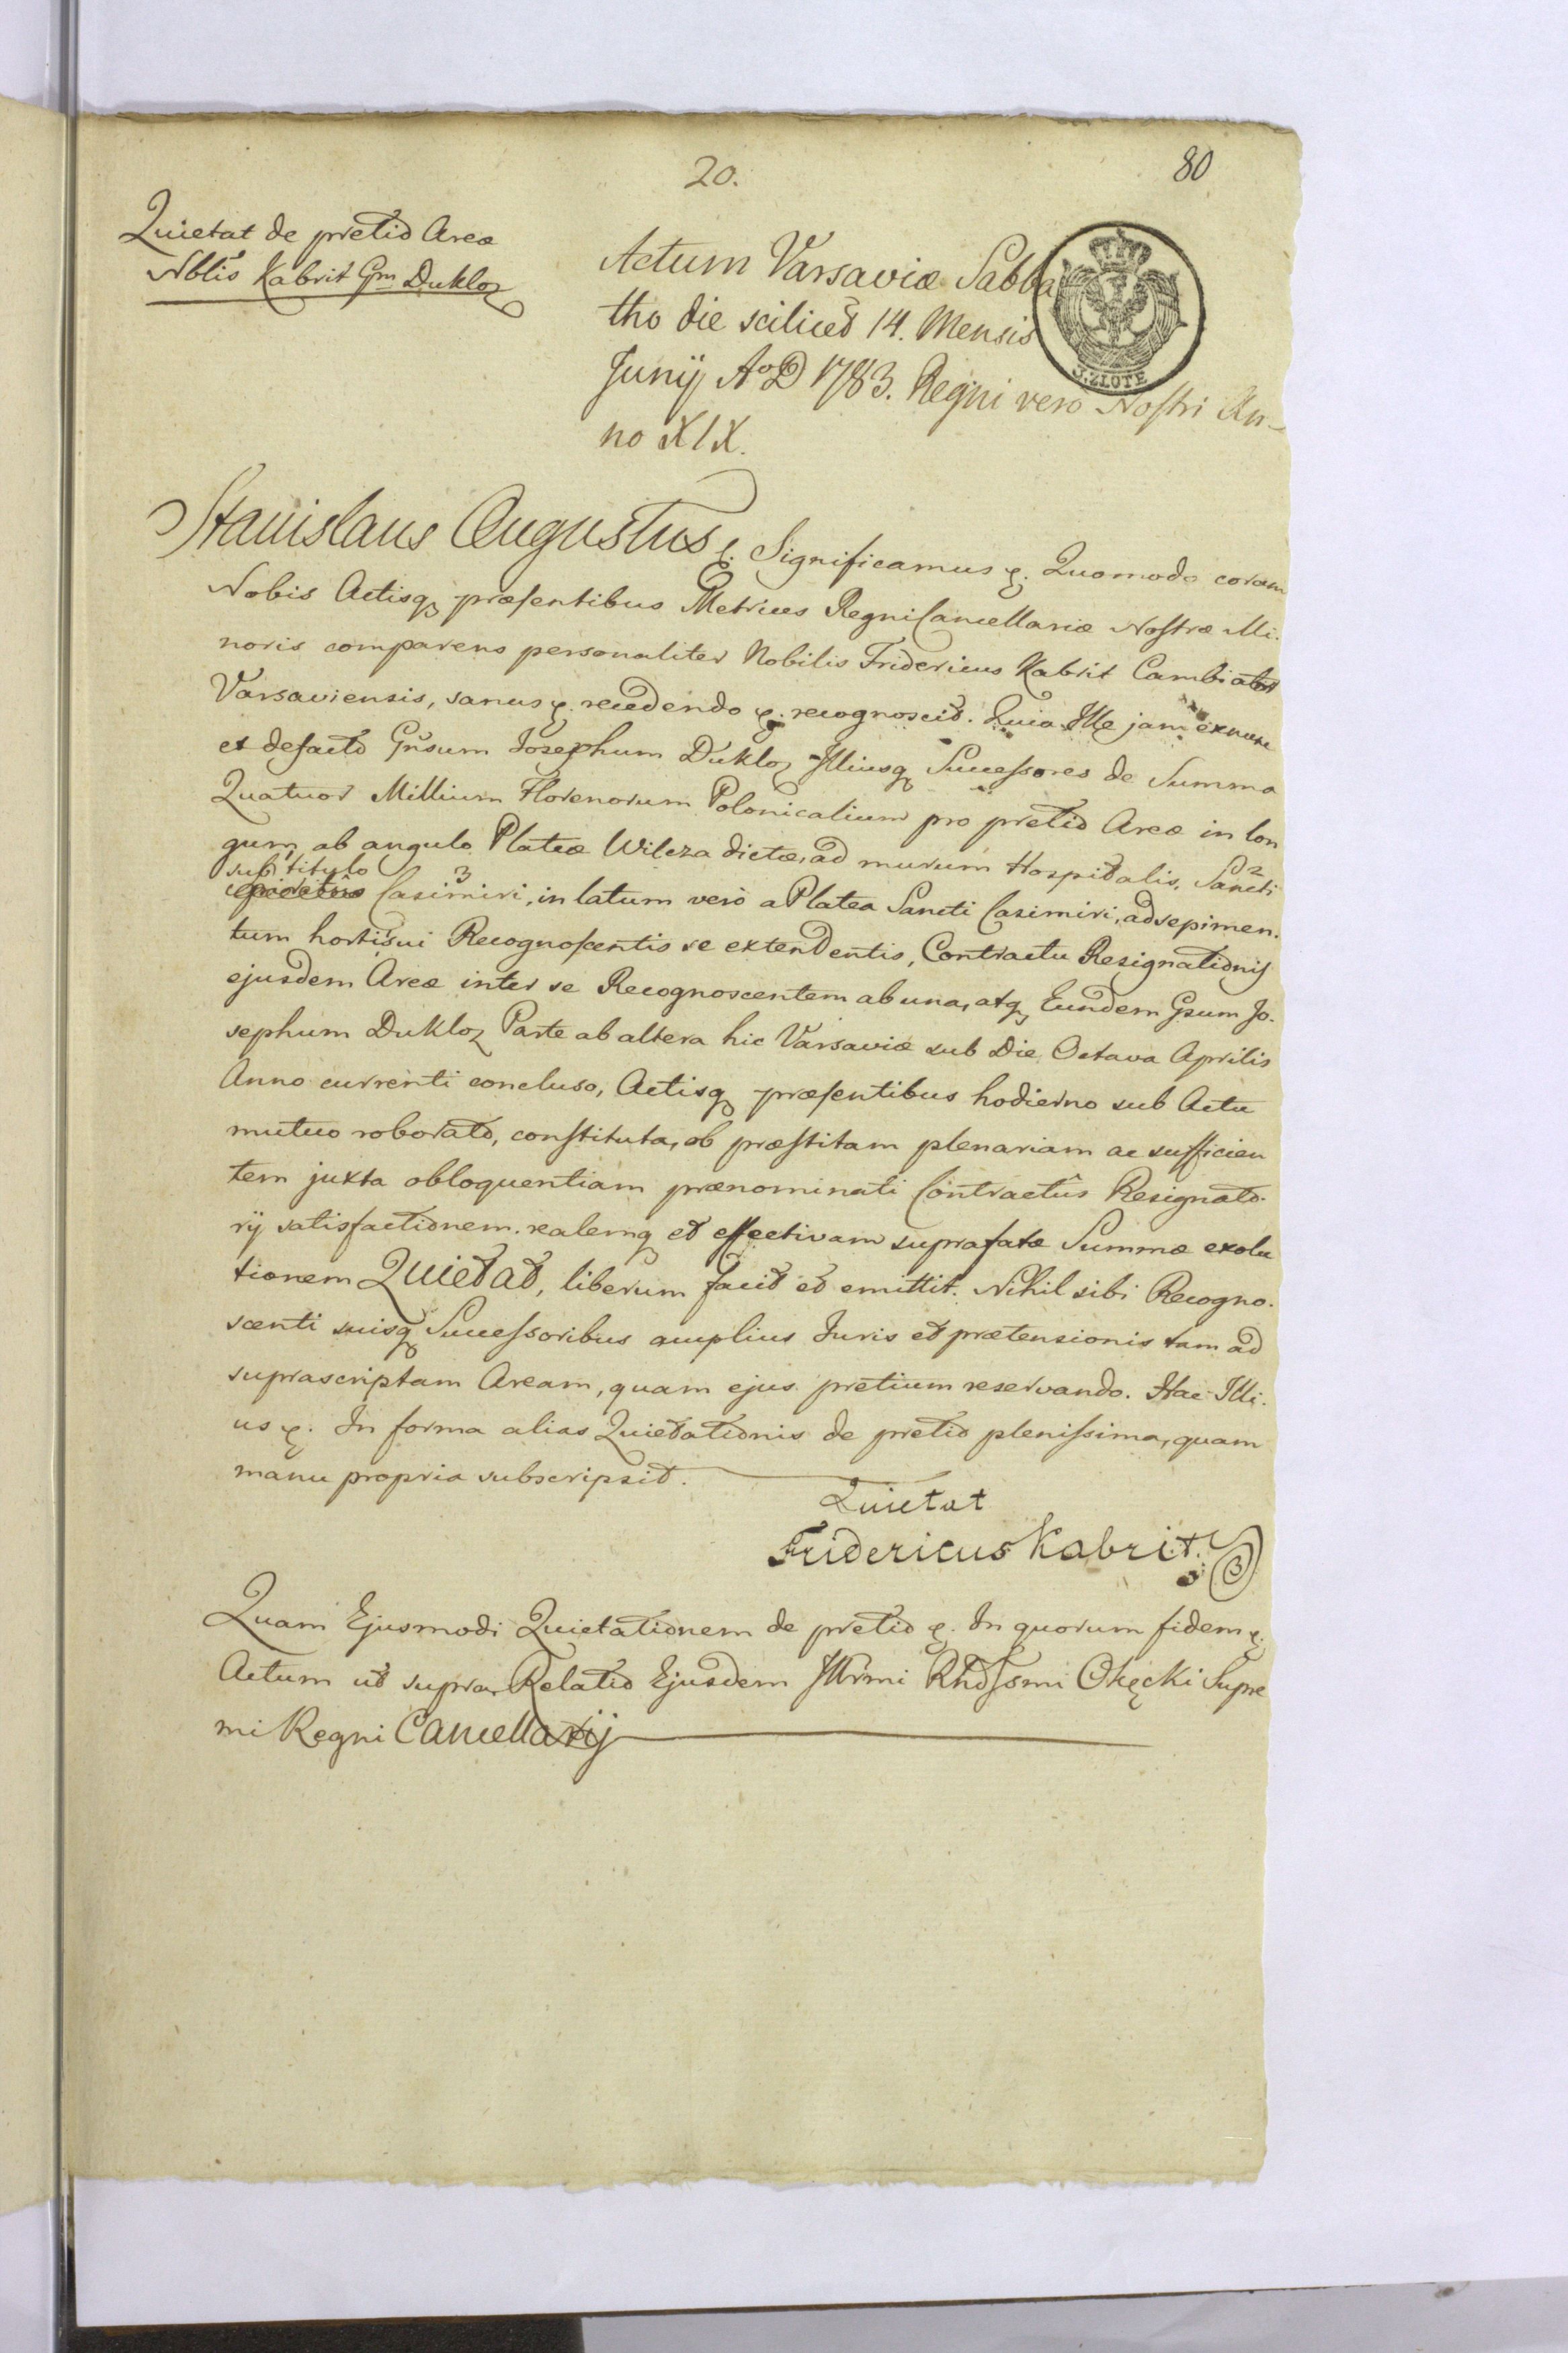 20.
80
Quietat de pretio Areæ
Nblis Kabrit Gm Dukloz
Actum Varsaviæ Sabba
tho die scilicet 14. Mensis
Junij AoD 1783. Regni vero Nostri An-
no XIX.
3. ZŁOTE
Stanislaus Augustus &. Significamus &. Quomodo coram
Nobis Actisq præsentibus Metrices Regni Cancellariæ Nostræ Mi-
noris comparens personaliter Nobilis Fridericus Kabrit Cambiator
Varsaviensis, sanus &. recedendo &. recognoscit. Quia Ille jam exnunc
et defacto Gnsum Josephum Dukloz Illiusq Successores de Summa
Quatuor Millium Florenorum Polonicalium pro pretio Areæ in lon
gum, ab angulo Plateæ Wilcza dictæ, ad murum Hospitalis, Sancti 2
sub titulo
Casimiri, 3 in latum verò a Platea Sancti Casimiri, ad sepimen-
tum horti sui Recognoscentis se extendentis, Contractu Resignationis
ejusdem Areæ inter se Recognoscentem ab una, atq Eundem Gsum Jo-
sephum Dukloz Parte ab altera hic Varsaviæ sub Die Octava Aprilis
Anno currenti concluso, Actisq præsentibus hodierno sub Actu
mutuo roborato, constituta, ob præstitam plenariam ac sufficien
tem juxta obloquentiam prænominati Contractûs Resignato-
rij satisfactionem realemq et effectivam suprafatæ Summæ exolu
tionem Quietat, liberum facit et emittit. Nihil sibi Recogno-
scenti suisq Successoribus amplius Juris et prætensionis tam ad
suprascriptam Aream, quam ejus pretium reservando. Hac Illi-
us &. In forma alias Quietationis de pretio plenissima, quam
manu propria subscripsit.
Quietat
Fridericus Kabrit.
Quam Ejusmodi Quietationem de pretio &. In quorum fidem &.
Actum ut supra, Relatio Ejusdem Illrmi Rndssmi Okęcki Supre
mi Regni Cancellarij